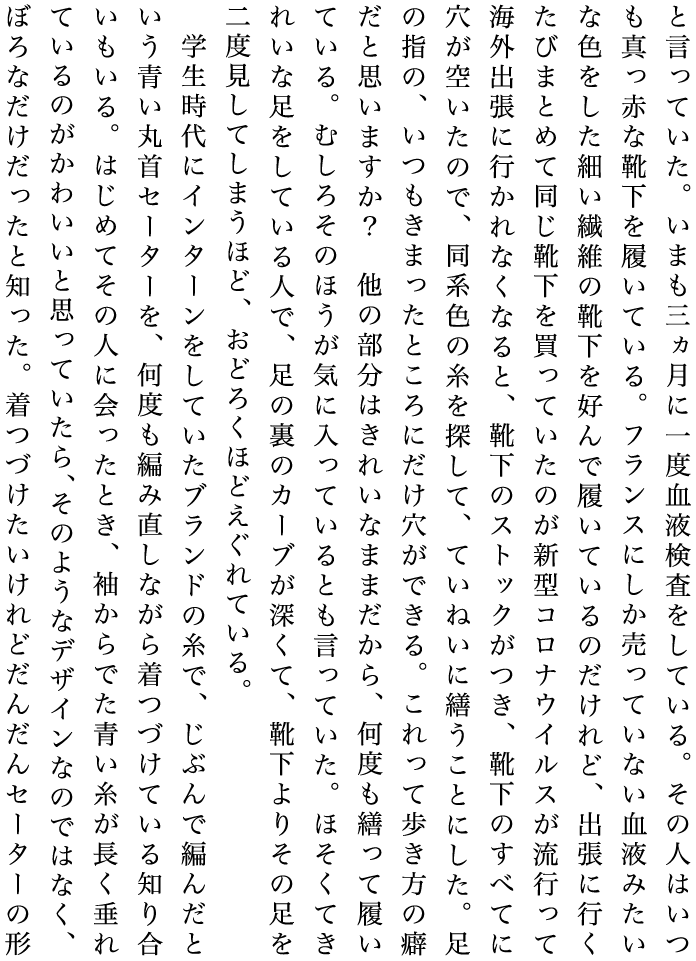 と言っていた。いまも三ヵ月に一度血液検査をしている。その人はいつ
も真っ赤な靴下を履いている。フランスにしか売っていない血液みたい
な色をした細い繊維の靴下を好んで履いているのだけれど、出張に行く
たびまとめて同じ靴下を買っていたのが新型コロナウイルスが流行って
海外出張に行かれなくなると、靴下のストックがつき、靴下のすべてに
穴が空いたので、同系色の糸を探して、ていねいに繕うことにした。足
の指の、いつもきまったところにだけ穴ができる。これって歩き方の癖
だと思いますか？　他の部分はきれいなままだから、何度も繕って履い
ている。むしろそのほうが気に入っているとも言っていた。ほそくてき
れいな足をしている人で、足の裏のカーブが深くて、靴下よりその足を
二度見してしまうほど、おどろくほどえぐれている。
　学生時代にインターンをしていたブランドの糸で、じぶんで編んだと
いう青い丸首セーターを、何度も編み直しながら着つづけている知り合
いもいる。はじめてその人に会ったとき、袖からでた青い糸が長く垂れ
ているのがかわいいと思っていたら、そのようなデザインなのではなく、
ぼろなだけだったと知った。着つづけたいけれどだんだんセーターの形